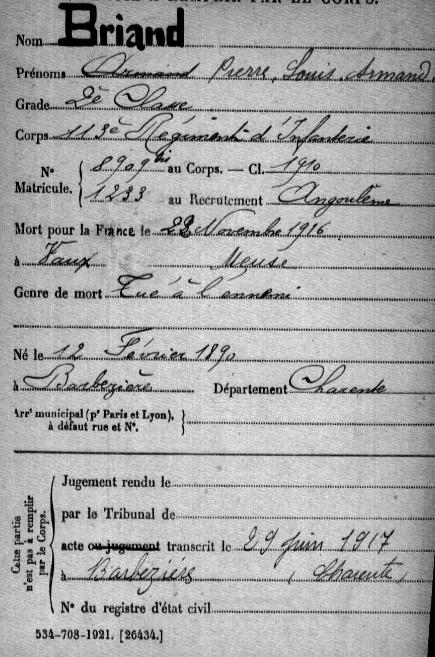 A REMPLIR PAR LE CORPS.
Nom Briand
Prénoms Armand Pierre, Louis, Armand.
Grade 2è Classe
Corps 113è Régiment d'Infanterie
N° Matricule. { 8909 bis au Corps. — Cl. 1910
1233 au Recrutement Angoulême
Mort pour la France le 22 Novembre 1916
à Vaux Meuse
Genre de mort Tué à l'ennemi
Né le 12 Février 1890
à Barbezière Département Charente
Arr^t municipal (p^r Paris et Lyon), à défaut rue et N°. }
Cette partie n'est pas à remplir par le Corps. { Jugement rendu le
par le Tribunal de
acte ou jugement transcrit le 29 juin 1917
à Barbezières (Charente)
N° du registre d'état civil
534-708-1921. [26434.]